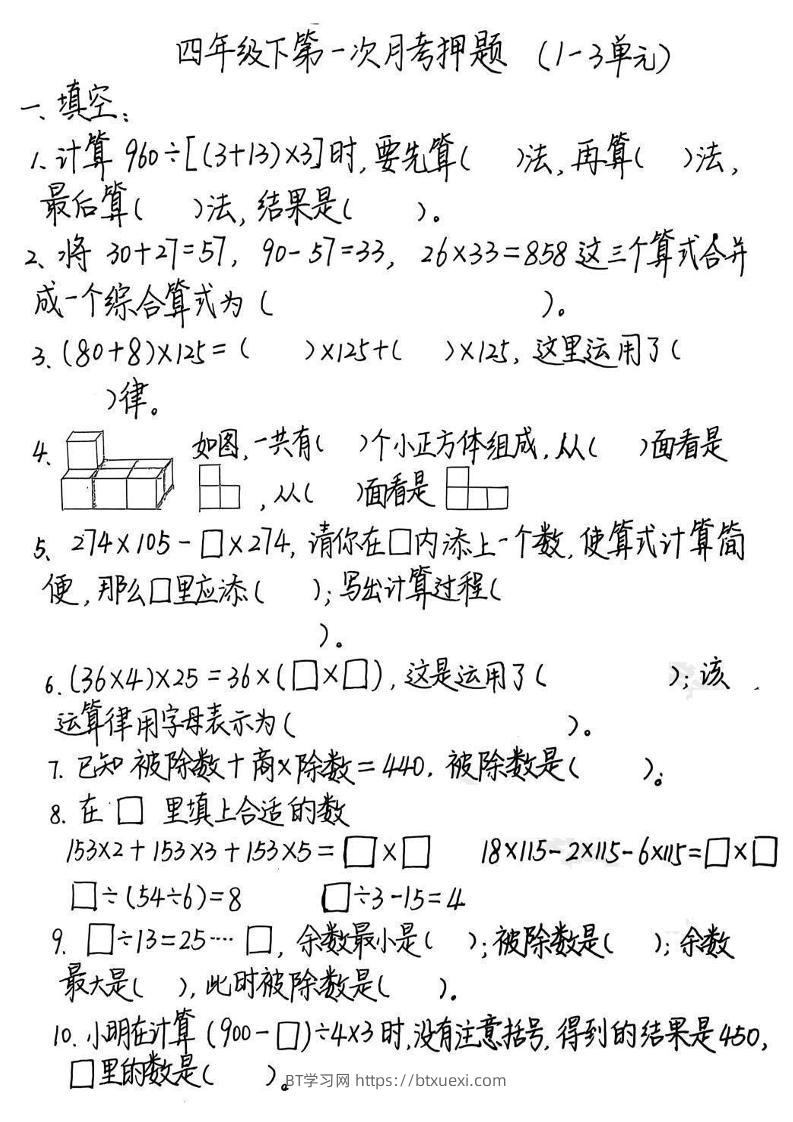 四年级下第一次月考押题 (1-3单元)
一、填空：
1. 计算 960÷[(3+13)×3]时,要先算(    )法,再算(    )法,
最后算(    )法, 结果是(    )。
2、将 30+27=57, 90-57=33, 26×33=858 这三个算式合并
成一个综合算式为(    )。
3、(80+8)×125=(    )×125+(    )×125, 这里运用了(
)律。
4、 如图,一共有(    )个小正方体组成,从(    )面看是
,从(    )面看是
5、274×105-□×274, 请你在□内添上一个数,使算式计算简
便,那么□里应添(    ); 写出计算过程(
)。
6. (36×4)×25=36×(□×□), 这是运用了(    ); 该
运算律用字母表示为(    )。
7. 已知 被除数+商×除数=440, 被除数是(    )。
8. 在 □ 里填上合适的数
153×2+153×3+153×5=□×□ 18×115-2×115-6×115=□×□
□÷(54÷6)=8 □÷3-15=4
9. □÷13=25····□, 余数最小是(    ); 被除数是(    ); 余数
最大是(    ), 此时被除数是(    )。
10. 小明在计算 (900-□)÷4×3 时,没有注意括号,得到的结果是450,
□里的数是(    )。
BT学习网 https://btxuexi.com